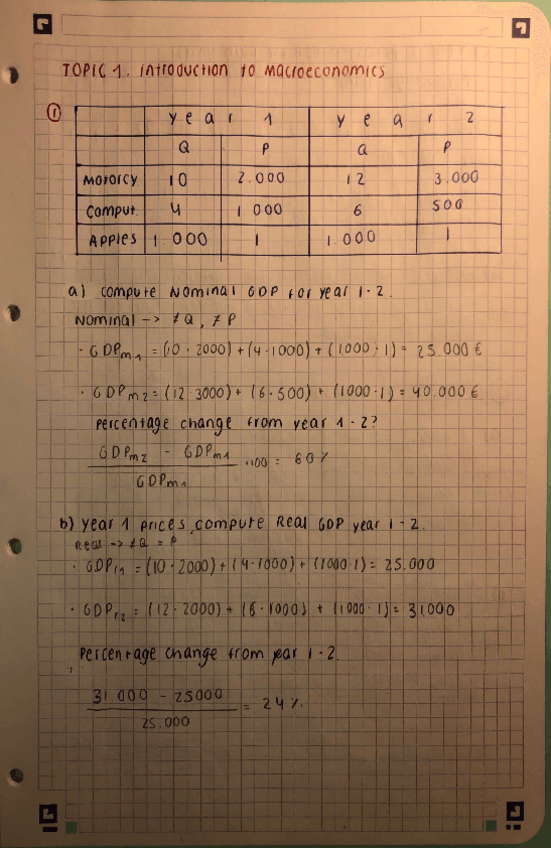 TOPIC 1. Introduction to Macroeconomics
①
year 1 year 2
Q P Q P
Motorcy 10 2.000 12 3.000
Comput. 4 1 000 6 500
Apples 1.000 1 1.000 1
a) compute Nominal GDP for year 1-2.
Nominal -> ≠Q, ≠P
· GDPm1 = (10 · 2000) + (4·1000) + (1000 · 1) = 25.000 €
· GDPm2 = (12·3000) + (6·500) + (1000·1) = 40.000 €
percentage change from year 1-2?
GDPm2 - GDPm1
·100 = 60%
GDPm1
b) year 1 prices, compute Real GDP year 1-2.
Real -> ≠Q = P
· GDPr1 = (10·2000) + (4·1000) + (1000·1) = 25.000
· GDPr2 = (12·2000) + (6·1000) + (1000·1) = 31.000
Percentage change from year 1-2.
31.000 - 25000
= 24%.
25.000